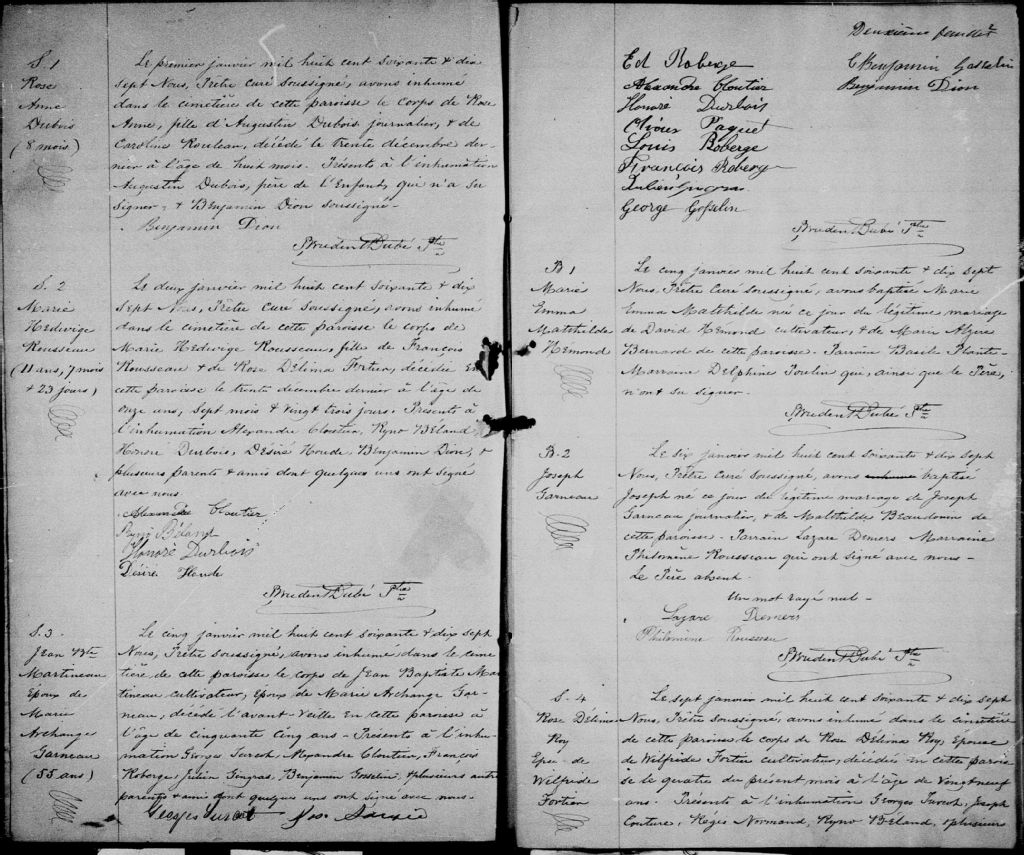 S. 1
Rose
Anne
Dubois
(8 mois)
Le premier janvier mil huit cent soixante & dix
sept Nous, Prêtre Curé Soussigné, avons inhumé
dans le cimetière de cette paroisse le corps de Rose
Anne, fille d'Augustin Dubois journalier, & de
Caroline Rouleau, décédé le trente décembre der-
nier à l'âge de huit mois. Présents à l'inhumation
Augustin Dubois, père de l'Enfant, qui n'a su
signer, & Benjamin Dion soussigné-
Benjamin Dion
Prudent Dubé Ptre
S. 2
Marie
Hedwige
Rousseau
(11 ans, 7 mois
& 23 jours)
Le deux janvier mil huit cent soixante & dix
sept Nous, Prêtre Curé Soussigné, avons inhumé
dans le cimetière de cette paroisse le corps de
Marie Hedwige Rousseau, fille de François
Rousseau & de Rose Délima Fortier, décédée en
cette paroisse le trente décembre dernier à l'âge de
onze ans, sept mois & vingt trois jours. Présents à
l'inhumation Alexandre Cloutier, Ryno Béland
Honoré Durbois, Désiré Houde, Benjamin Dion, &
plusieurs parents & amis dont quelques uns ont signé
avec nous
Alexandre Cloutier
Ryno Béland
Honoré Durbois
Désiré Houde
Prudent Dubé Ptre
S. 3.
Jean Bte
Martineau
Epoux de
Marie
Archange
Garneau
(55 ans)
Le cinq janvier mil huit cent soixante & dix sept
Nous, Prêtre soussigné, avons inhumé dans le cime
tière de cette paroisse le corps de Jean Baptiste Mar
tineau cultivateur, Epoux de Marie Archange Gar-
neau, décédé l'avant-veille en cette paroisse à
l'âge de cinquante cinq ans - Présents à l'inhu-
mation Alexandre Cloutier, François
Roberge, Julien Gingras, Benjamin Gosselin, & plusieurs autres
parents & amis dont quelques uns ont signé avec nous-
Deuxième feuillet
Ed Roberge
Alexandre Cloutier
Honoré Durbois
Olivier Paquet
Louis Roberge
François Roberge
Julien Gingras
George Gosselin
Benjamin Gosselin
Benjamin Dion
Prudent Dubé Ptre
B 1
Marie
Emma
Mathilde
Hemond
Le cinq janvier mil huit cent soixante & dix sept
Nous, Prêtre Curé soussigné, avons baptisé Marie
Emma Mathilde née ce jour du légitime mariage
de David Hemond cultivateur, & de Marie
Bernard de cette paroisse. Parrain Basile Plante-
Marraine Delphine Poulin qui, ainsi que le Père,
n'ont su signer.
Prudent Dubé Ptre
B-2
Joseph
Garneau
Le six janvier mil huit cent soixante & dix sept
Nous, Prêtre Curé soussigné, avons inhumé baptisé
Joseph né ce jour du légitime mariage de Joseph
Garneau journalier, & de Mathilde Beaudouin de
cette paroisse. Parrain Lazare Demers Marraine
Philomène Rousseau qui ont signé avec nous-
Le Père absent.
Un mot rayé nul-
Lazare Demers
Philomène Rousseau
Prudent Dubé Ptre
S-4
Rose Délima
Roy
Epse de
Wilfride
Fortier
Le sept janvier mil huit cent soixante & dix sept
Nous, Prêtre soussigné, avons inhumé dans le cimetière
de cette paroisse le corps de Rose Délima Roy, Epouse
de Wilfride Fortier cultivateur, décédée en cette parois
se le quatre du présent mois à l'âge de vingt neuf
ans. Présents à l'inhumation Georges Joseph
Couture, Régis Normand, Ryno Béland, & plusieurs